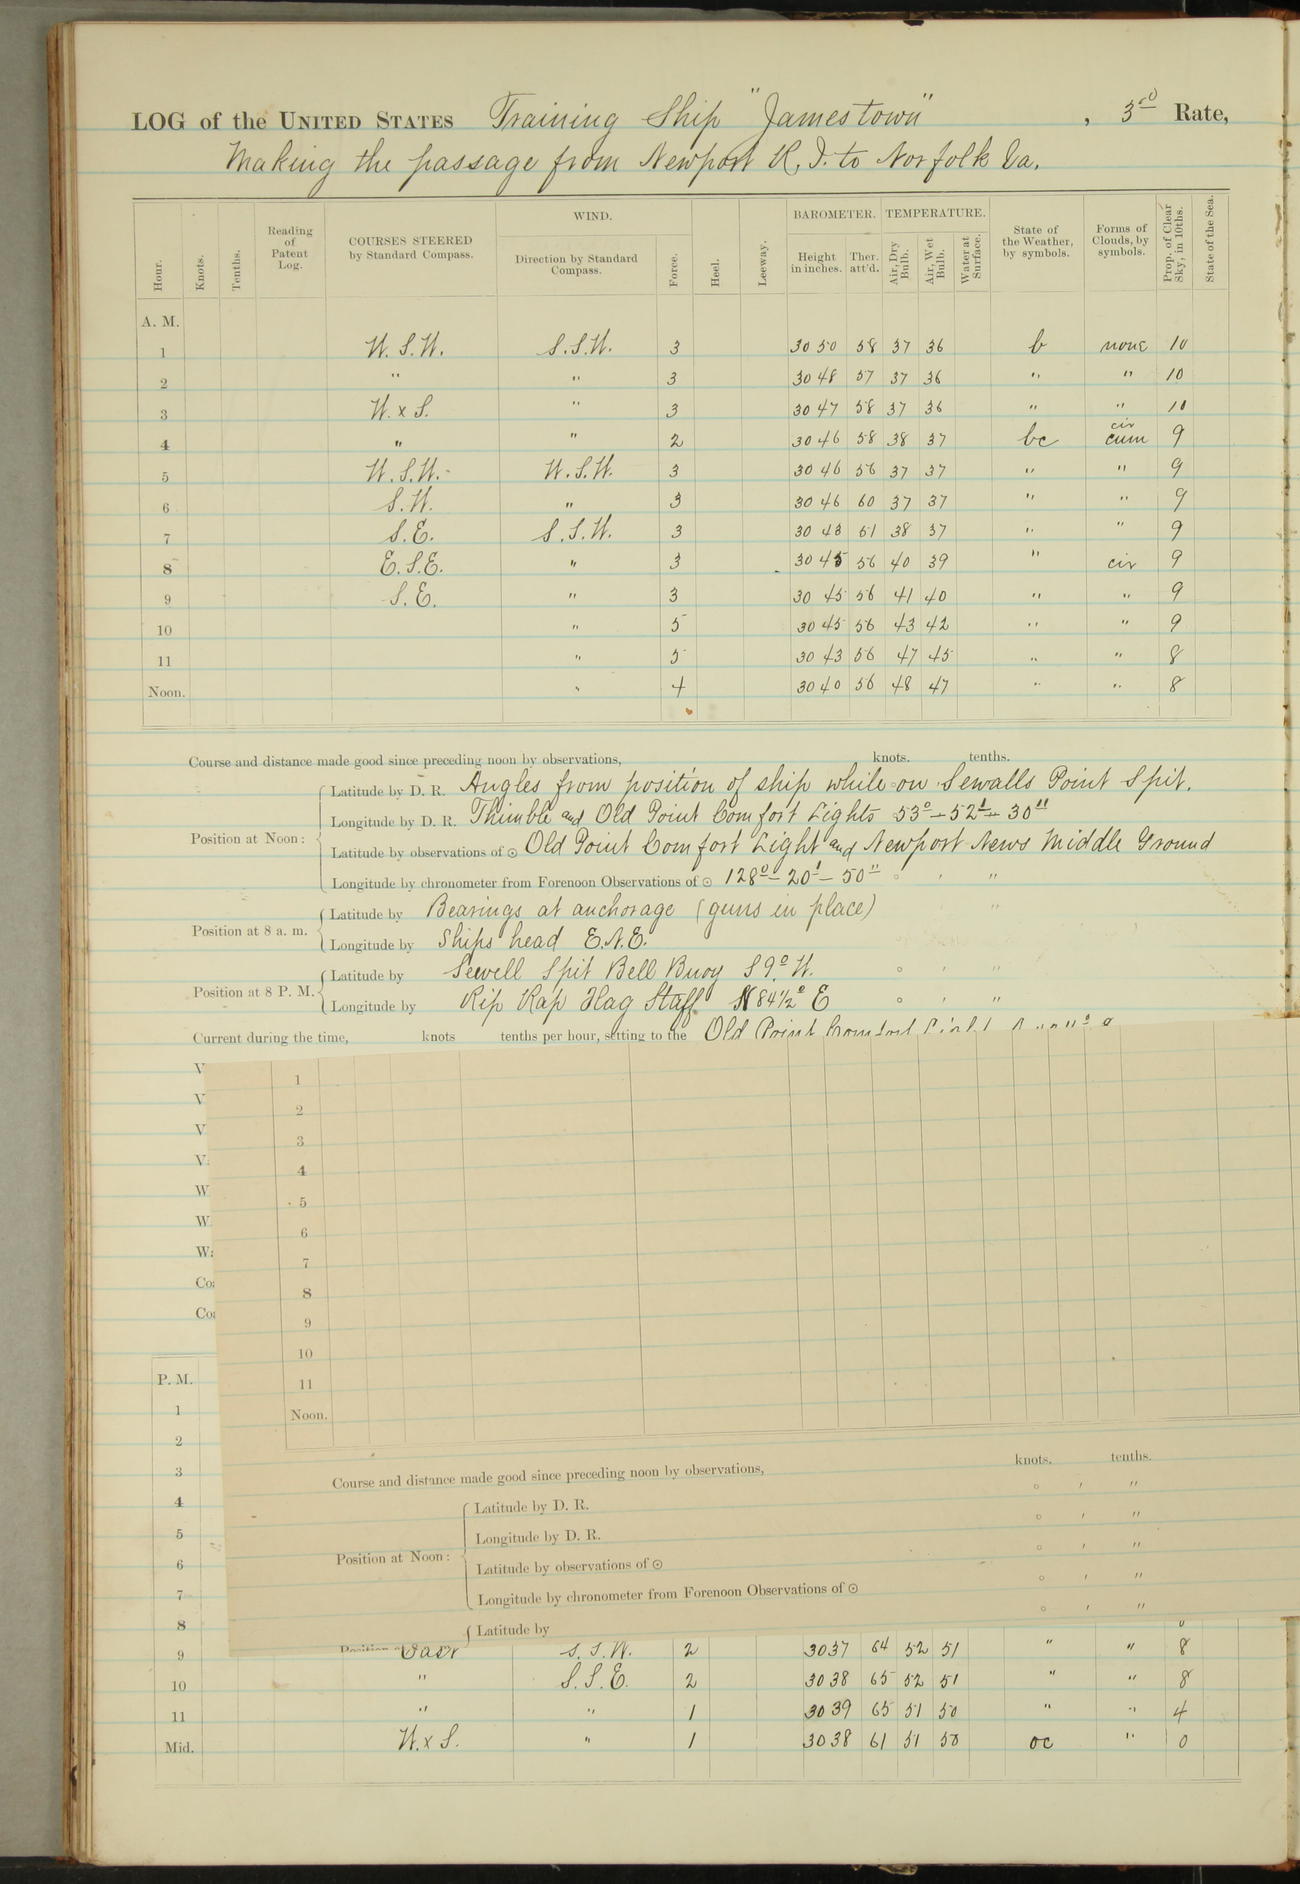 LOG of the UNITED STATES Training Ship "Jamestown", 3rd Rate,
Making the passage from Newport R. I. to Norfolk Va.
Hour. Knots. Tenths. Reading of Patent Log. COURSES STEERED by Standard Compass. WIND. Direction by Standard Compass. Force. Heel. Leeway. BAROMETER. Height in inches. Ther. att'd. TEMPERATURE. Air, Dry Bulb. Air, Wet Bulb. Water at Surface. State of the Weather, by symbols. Forms of Clouds, by symbols. Prop. of Clear Sky, in 10ths. State of the Sea.
A. M.
1 W. S. W. S. S. W. 3 30 50 58 37 36 b none 10
2 " " 3 30 48 57 37 36 " " 10
3 W. x S. " 3 30 47 58 37 36 " " 10
4 " " 2 30 46 58 38 37 bc cir cum 9
5 W. S. W. W. S. W. 3 30 46 56 37 37 " " 9
6 S. W. " 3 30 46 60 37 37 " " 9
7 S. E. S. S. W. 3 30 43 61 38 37 " " 9
8 E. S. E. " 3 30 45 56 40 39 " cir 9
9 S. E. " 3 30 45 56 41 40 " " 9
10 " 5 30 45 56 43 42 " " 9
11 " 5 30 43 56 47 45 " " 8
Noon. " 4 30 40 56 48 47 " " 8
Course and distance made good since preceding noon by observations, knots. tenths.
Position at Noon:
Latitude by D. R. Angles from position of ship while on Sewalls Point Spit.
Longitude by D. R. Thimble and Old Point Comfort Lights 53° - 52' - 30"
Latitude by observations of ☉ Old Point Comfort Light and Newport News Middle Ground
Longitude by chronometer from Forenoon Observations of ☉ 128° - 20' - 50" ° ' "
Position at 8 a. m.
Latitude by Bearings at anchorage (guns in place) "
Longitude by Ships head E.N.E.
Position at 8 P. M.
Latitude by Sewell Spit Bell Buoy S 9° W. ° ' "
Longitude by Rip Rap Flag Staff N 84 1/2° E ° ' "
Current during the time, knots tenths per hour, setting to the Old Point Comfort Light
1
2
3
4
5
6
7
8
9
10
11
Noon.
Course and distance made good since preceding noon by observations, knots. tenths.
Position at Noon:
Latitude by D. R. ° ' "
Longitude by D. R. ° ' "
Latitude by observations of ☉ ° ' "
Longitude by chronometer from Forenoon Observations of ☉ ° ' "
Latitude by ° ' "
P. M.
1
2
3
4
5
6
7
8
9 East S. S. W. 2 30 37 64 52 51 " " 8
10 " S. S. E. 2 30 38 65 52 51 " " 8
11 " " 1 30 39 65 51 50 " " 4
Mid. W. x S. " 1 30 38 61 51 50 oc " 0